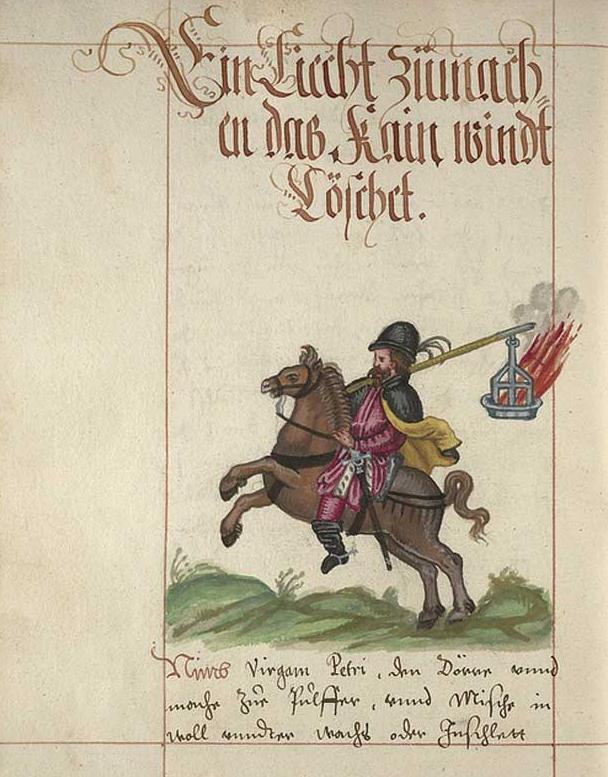 Ein Liecht zümach
en das Kain windt
Löschet.
Nimb Virgam Petri, den Dörre vnnd
mache Züe Pulffer, vnnd Mische in
woll vnndter wachs oder Inschlett